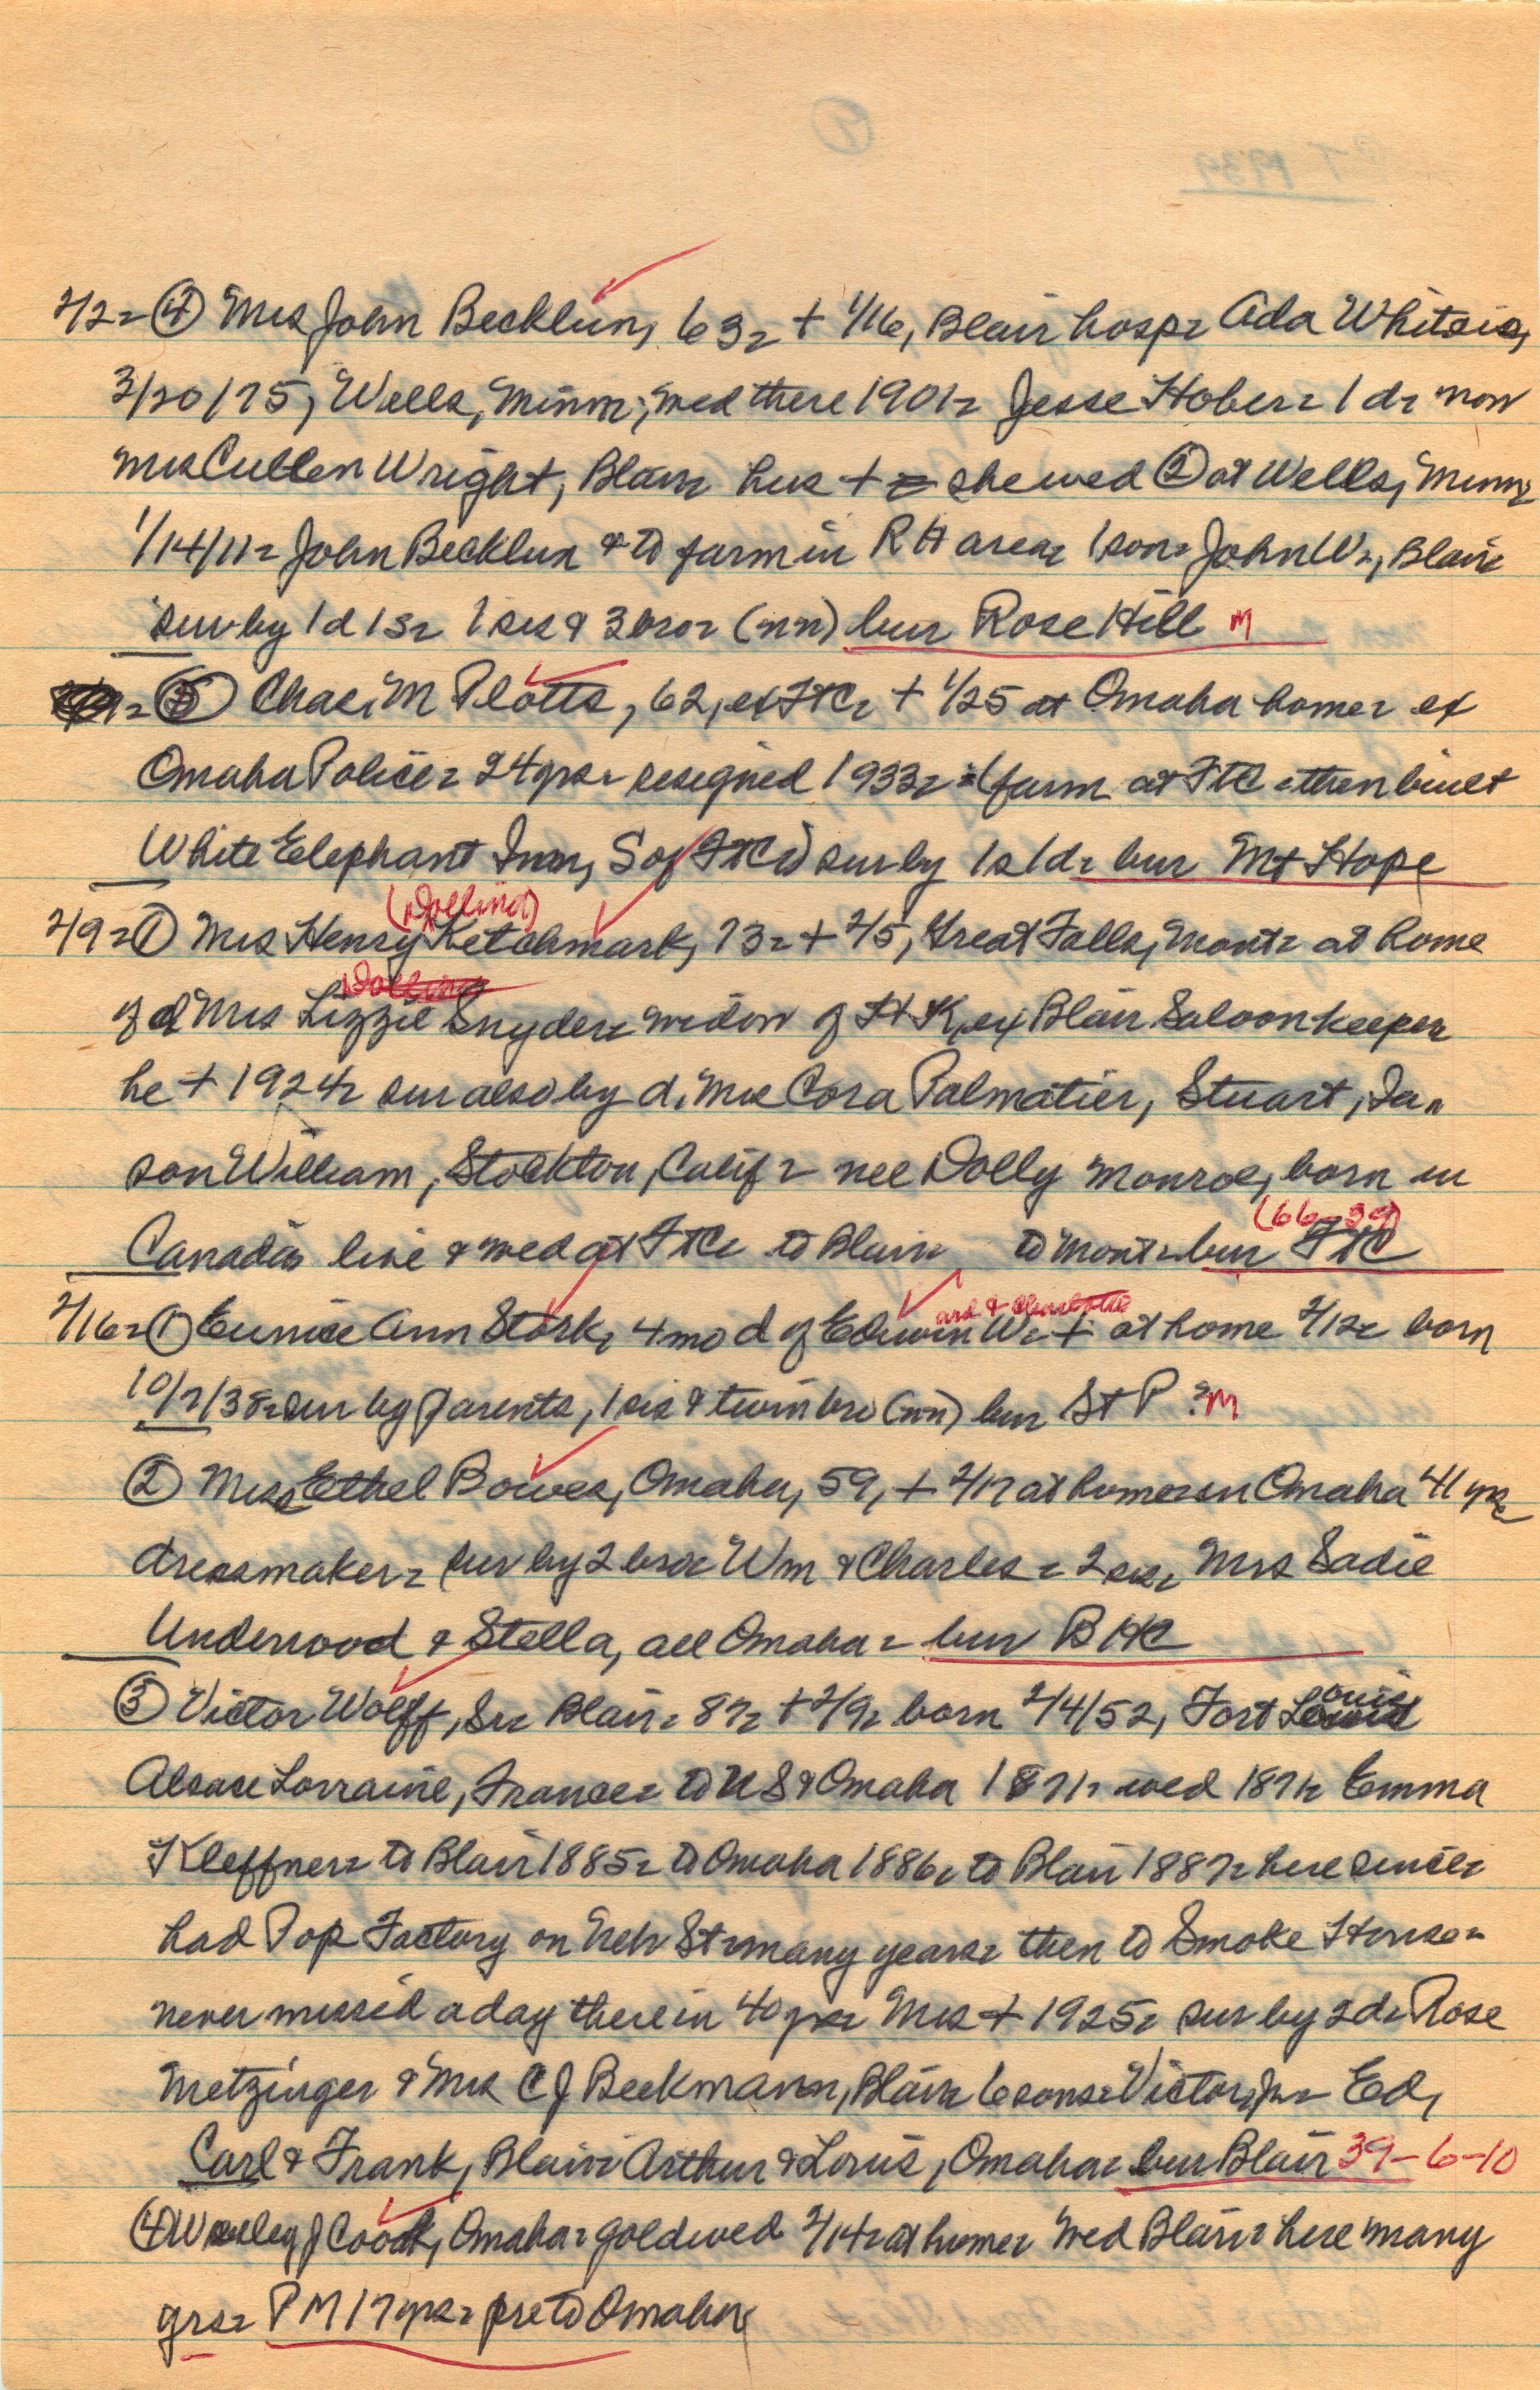 2/2- ④ Mrs John Becklun, 63- + 1/16, Blair hosp- Ada Whitsis,
3/20/75, Wells, Minn; wed there 1901- Jesse Hober- 1 d- now
Mrs Cullen Wright, Blair- hus + - she wed ② at Wells, Minn-
1/14/11- John Becklun & to farm in RH area- 1 son- John W-, Blair-
sur by 1 d 1 s- 1 sis & 3 bro- (nn) bur Rose Hill M
⑤ Chas. M Plotts, 62, ex FtC- + 1/25 at Omaha home- ex
Omaha Police- 24 yrs- resigned 1933- (farm at FtC - then built
White Elephant Inn, S of FtC) sur by 1 s 1 d- bur Mt Hope
(Dolling)
2/9- ① Mrs Henry Ketchmark, 73- + 2/5, Great Falls, Mont- at home
Dolling
of d Mrs Lizzie Snyder- widow of H K, ex Blair Saloon keeper
he + 1924- sur also by d. Mrs Cora Palmatier, Stuart, Ia-
son William, Stockton, Calif- nee Dolly Monroe, born in
Canada- live & wed at FtC- to Blair- to Mont- bur FtC (66-39)
2/16- ① Eunice Ann Stork, 4 mo d of Edwin W- + at home 2/12- born
ard & Charlotte
10/7/38- sur by parents, 1 sis & twin bro (nn) bur St P ?M
② Mrs Ethel Bowes, Omaha, 59, + 2/17 at home- in Omaha 41 yrs-
dressmaker- sur by 2 bro- Wm & Charles- 2 sis- Mrs Sadie
Underwood & Stella, all Omaha- bur B HC
③ Victor Wolff, Sr- Blair- 87- + 2/9- born 2/4/52, Fort Louis
Alsace Lorraine, France- to US & Omaha 1871- wed 1871- Emma
Kleffner- to Blair 1885- to Omaha 1886- to Blair 1887- here since-
had Pop Factory on Neb St- many years- then to Smoke House-
never missed a day there in 40 yrs- Mrs + 1925- sur by 2 d- Rose
Metzinger & Mrs C J Beckmann, Blair- 6 sons- Victor, Jr- Ed,
Carl & Frank, Blair- Arthur & Louis, Omaha- bur Blair 39-6-10
④ Wesley J Cook, Omaha- gold wed 2/14- at home- wed Blair- here many
yrs- PM 17 yrs- pre to Omaha